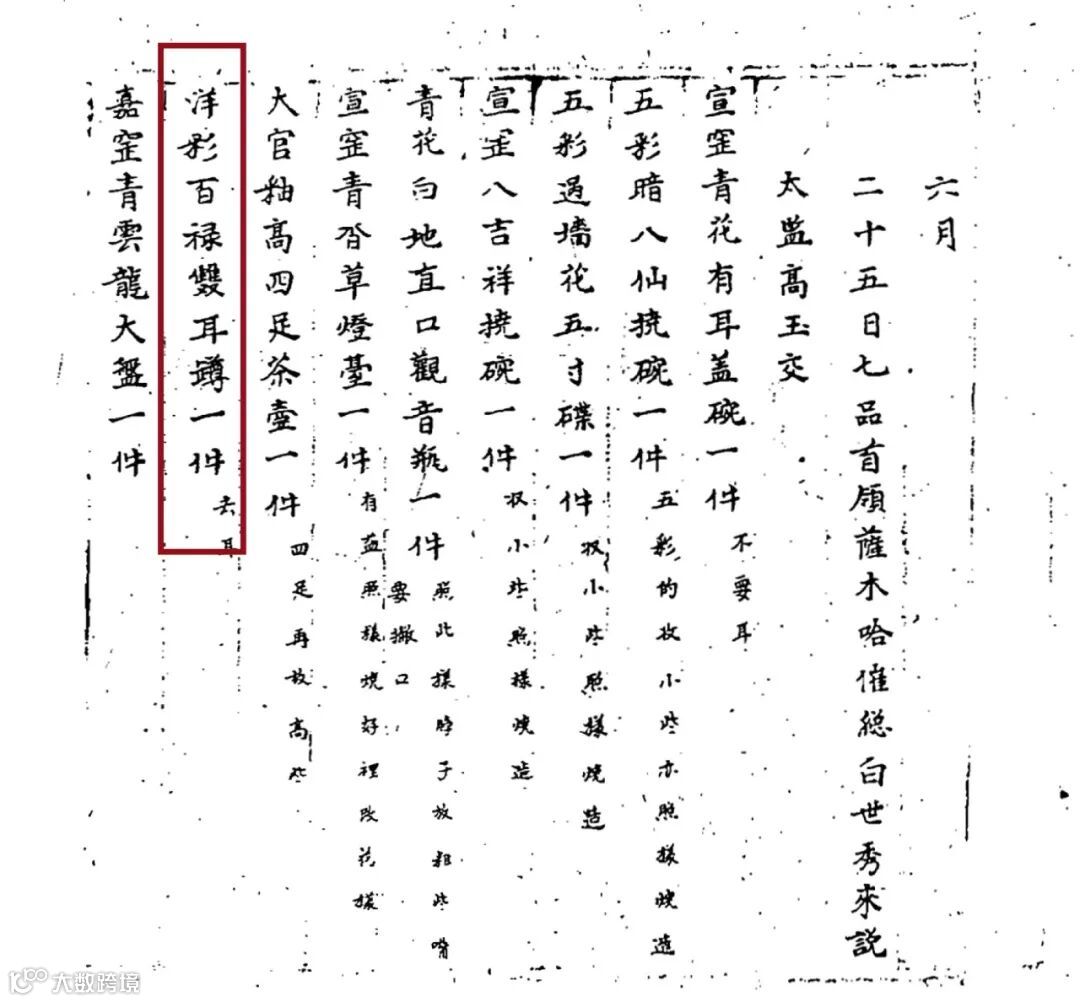 六月
二十五日七品首領薩木哈催總白世秀來說
太監高玉交
宣窑青花有耳盖碗一件 不要耳
五彩暗八仙撓碗一件 五彩的收小些亦照樣燒造
五彩過墻花五寸碟一件 收小些照樣燒造
宣窑八吉祥撓碗一件 收小些照樣燒造
青花白地直口觀音瓶一件 照此樣脖子放粗些嘴
要撇口
宣窑青草燈臺一件 有照樣燒好裡改花樣
大官釉高四足茶壺一件 四足再放高些
洋彩百禄雙耳蹲一件 去耳
嘉窑青雲龍大盤一件
大数跨境